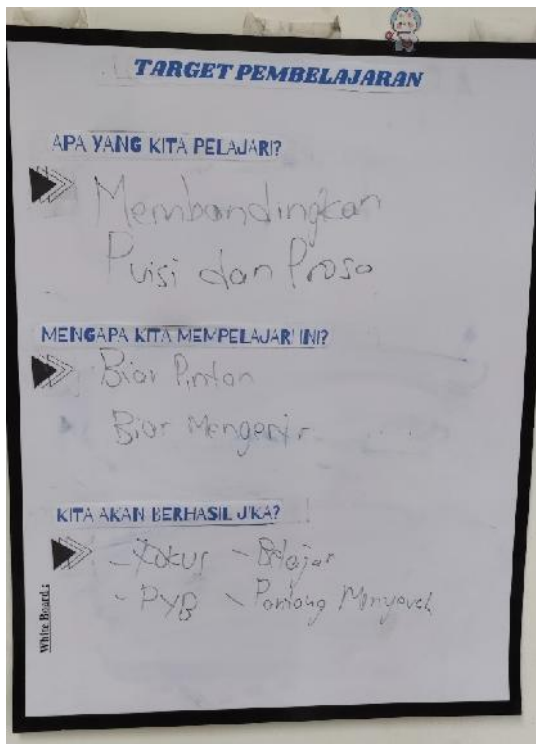 TARGET PEMBELAJARAN
APA YANG KITA PELAJARI?
Membandingkan
Puisi dan Prosa
MENGAPA KITA MEMPELAJARI INI?
Biar Pintar
Biar Mengerti
KITA AKAN BERHASIL JIKA?
- Fokus - Belajar
- PYB - Pantang Menyerah
White Board :